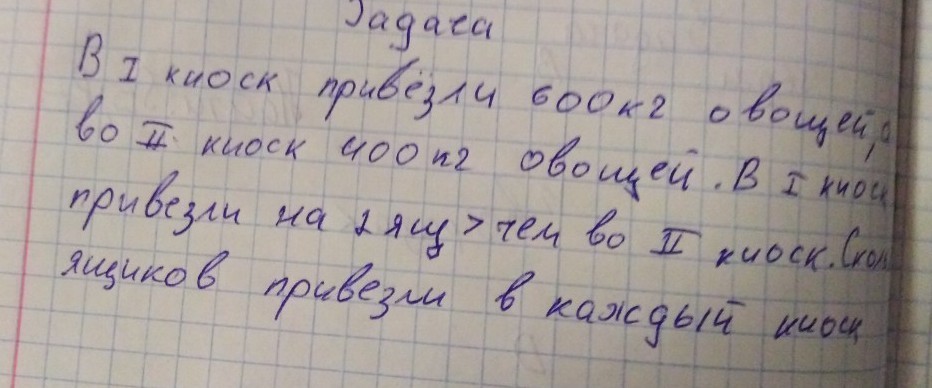 Задача
В I киоск привезли 600кг овощей, а
во II киоск 400кг овощей. В I киоск
привезли на 2 ящ > чем во II киоск. Скол
ящиков привезли в каждый киоск